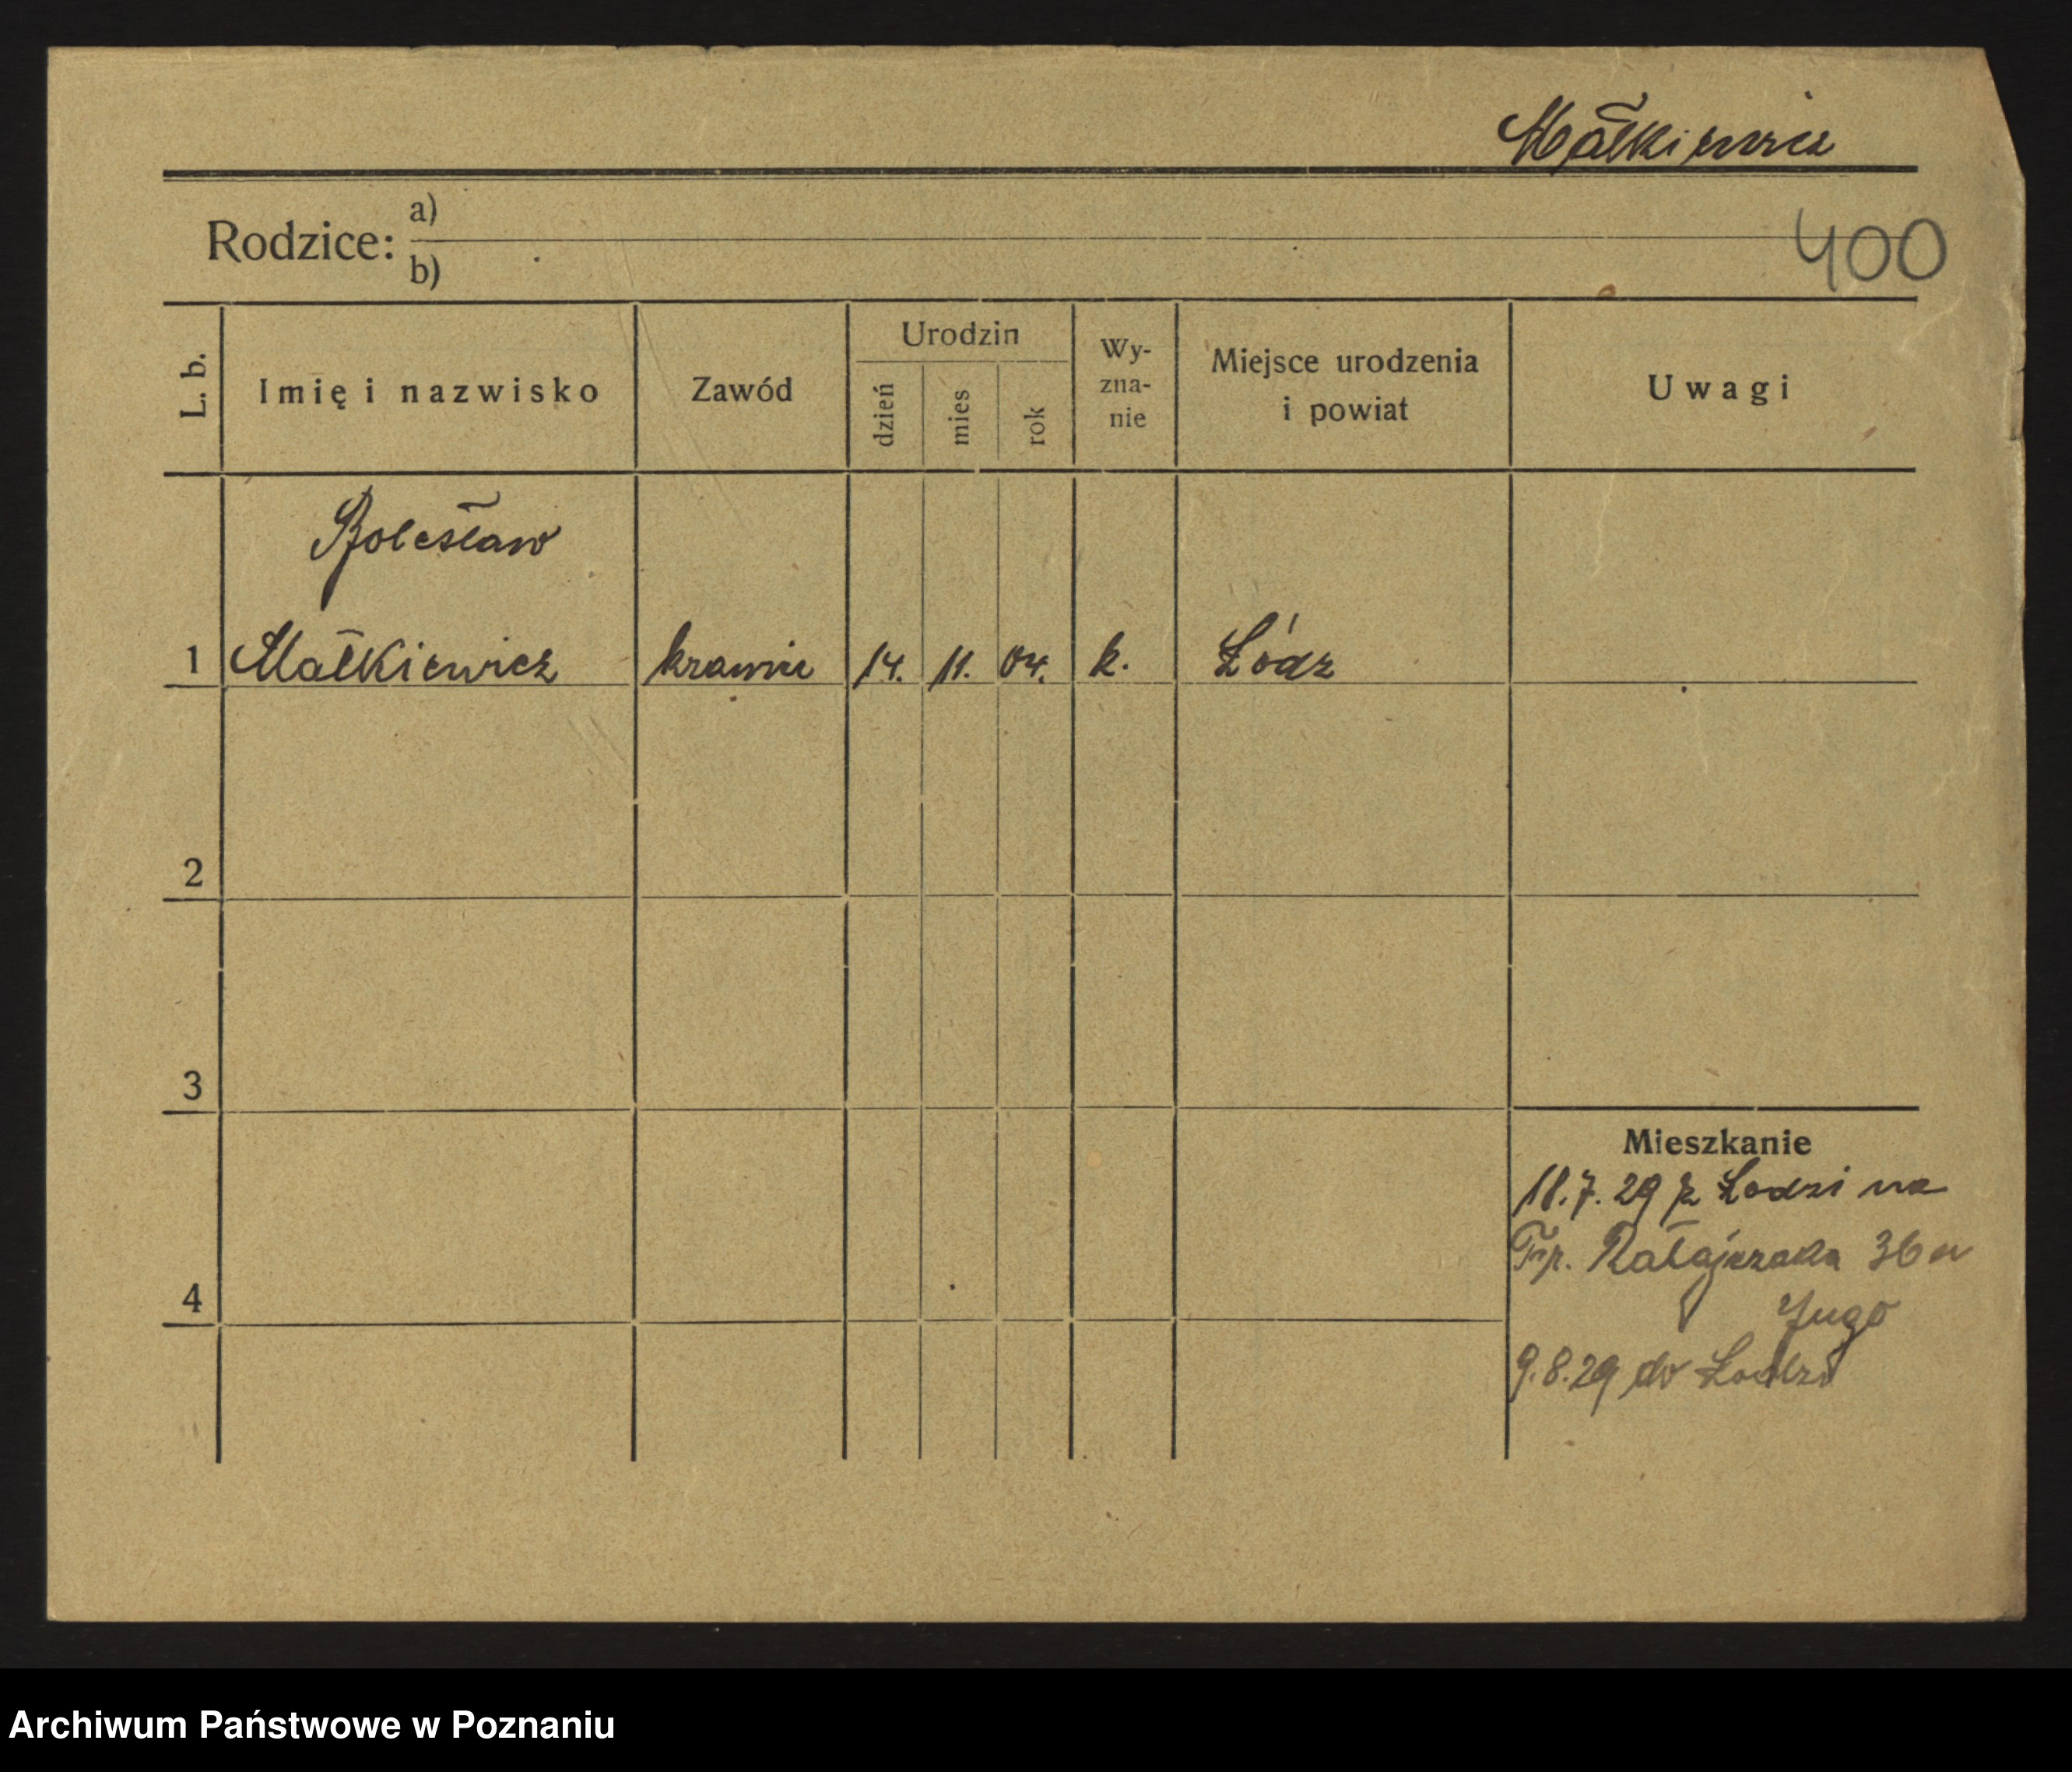 Małkiewicz
Rodzice: a)
b)
400
L. b.
Imię i nazwisko
Zawód
Urodzin
dzień
mies
rok
Wy-
zna-
nie
Miejsce urodzenia
i powiat
Uwagi
Bolesław
1 Małkiewicz krawiec 14. 11. 04. k. Łódz
2
3
4
Mieszkanie
18.7.29 z Łodzi na
Ratajczaka 36
9.8.29 do Łodzi
Archiwum Państwowe w Poznaniu